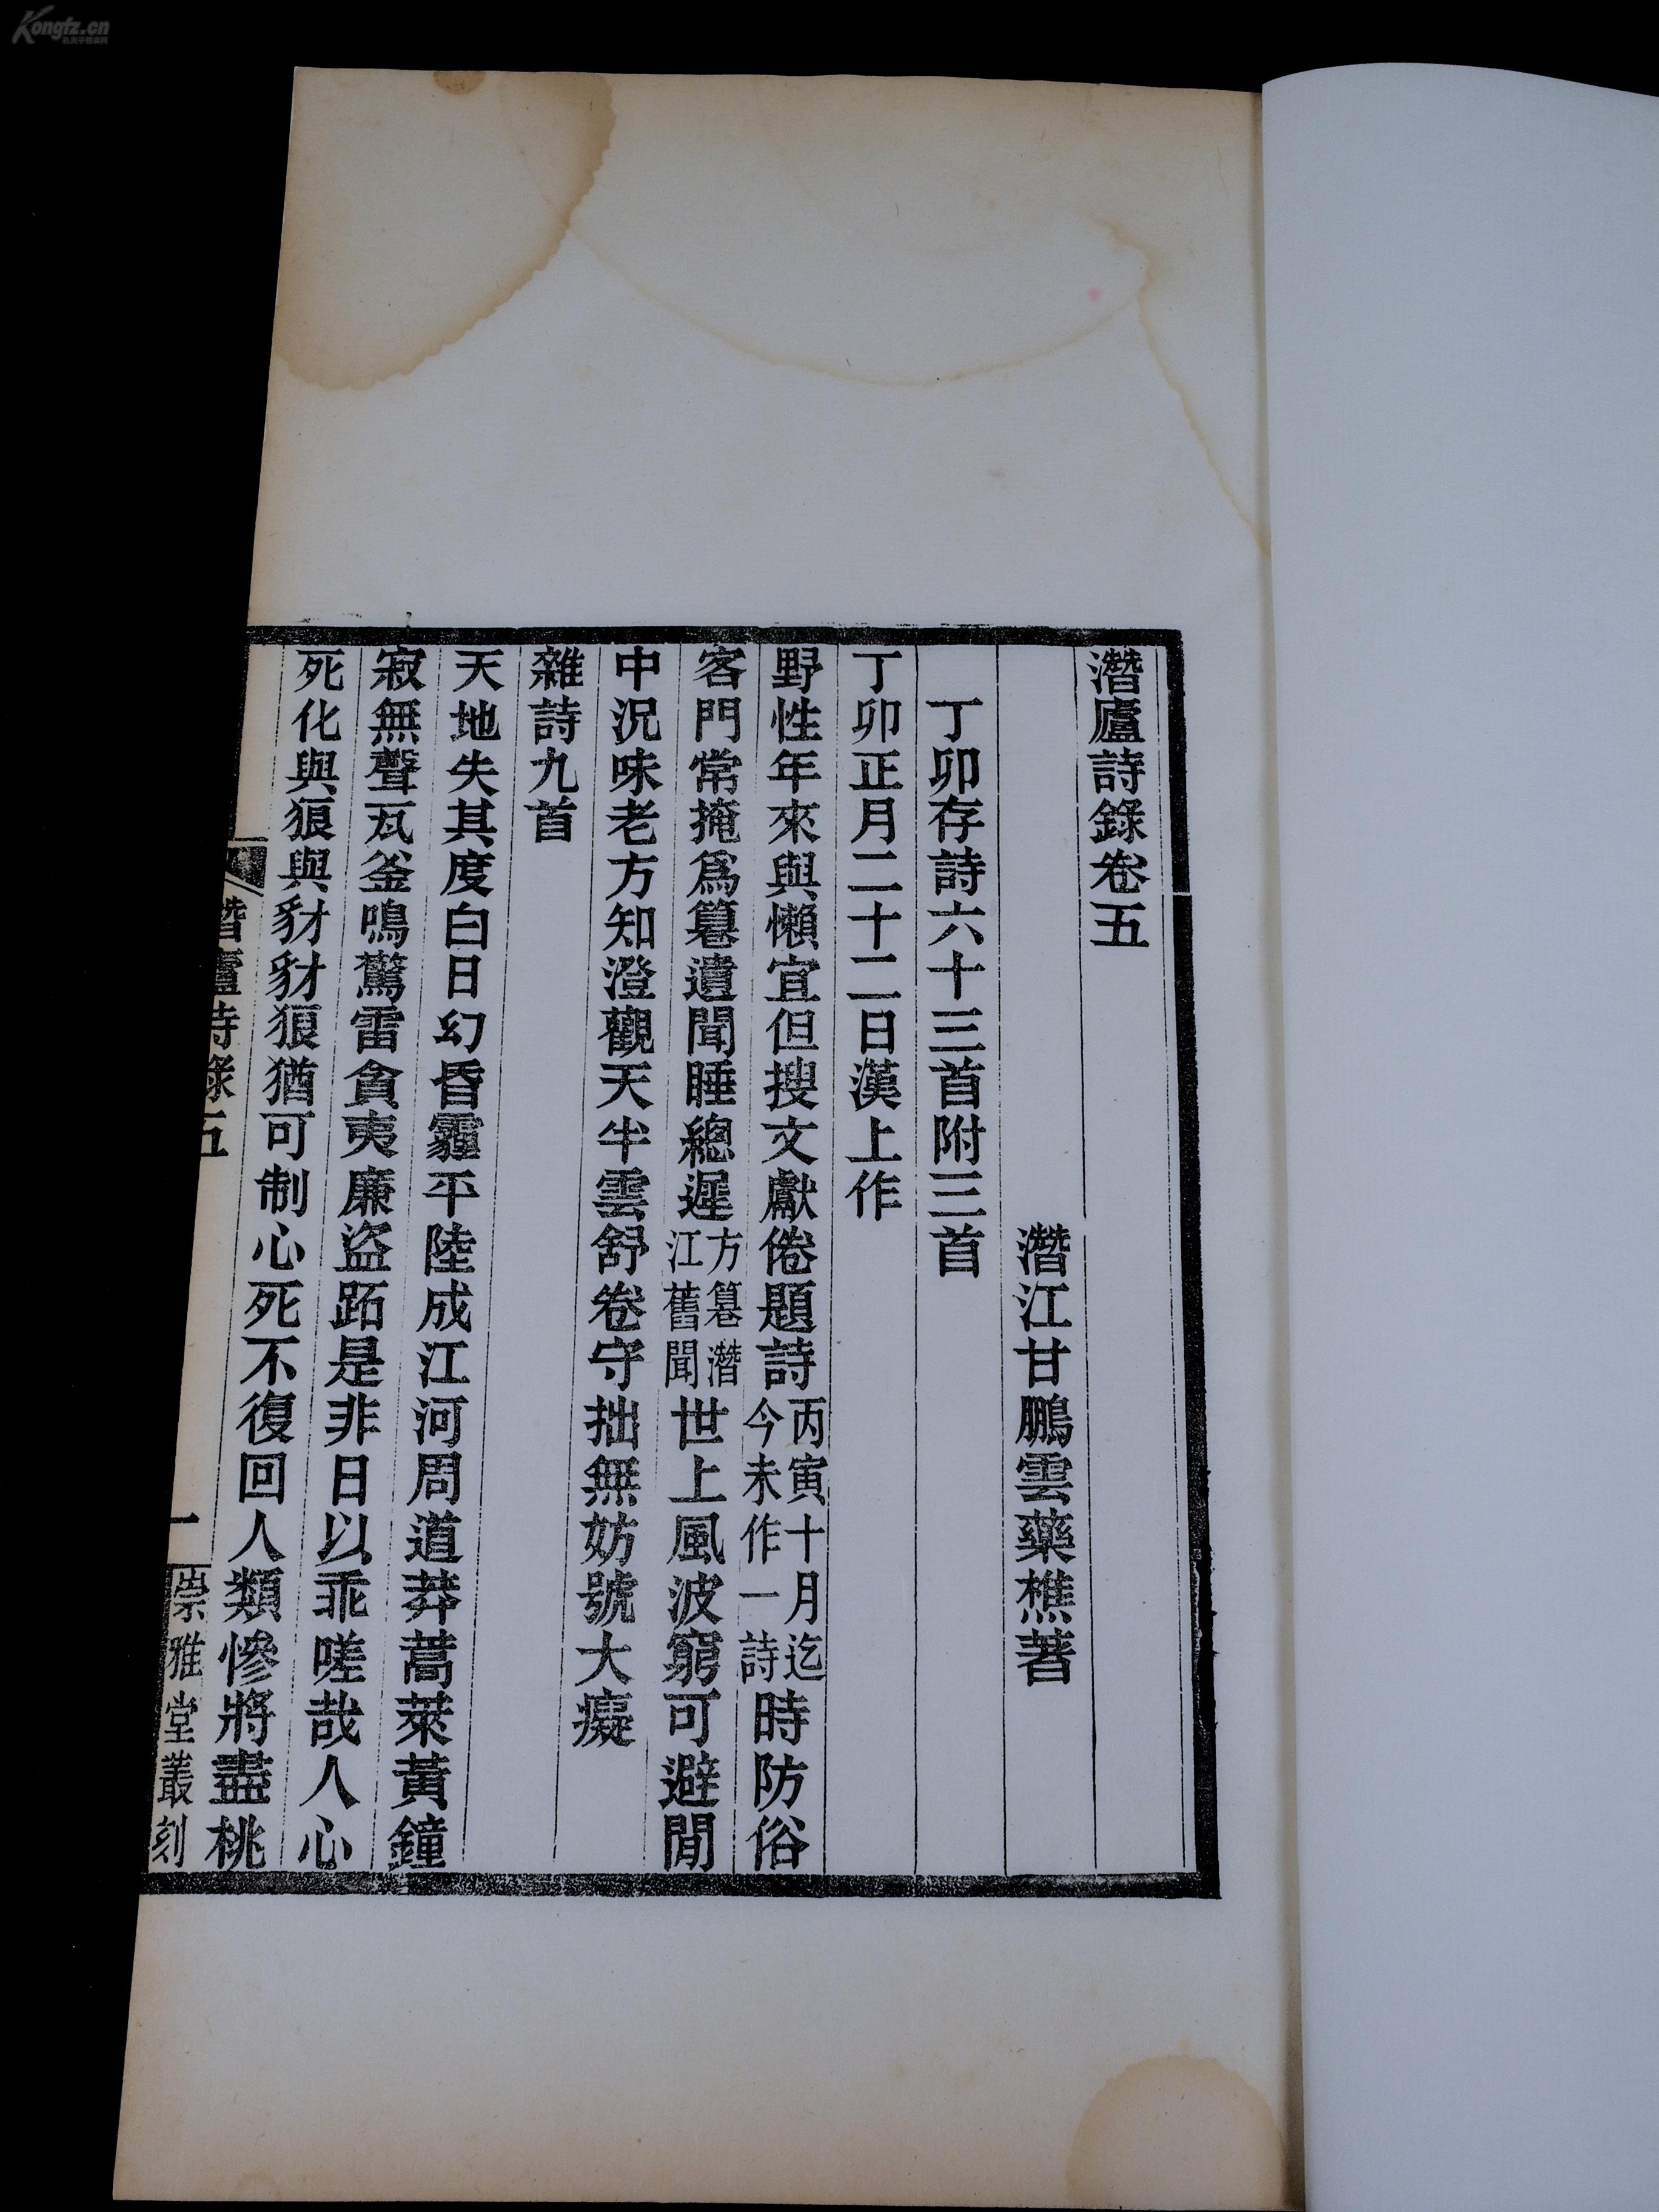 潛廬詩錄卷五
潛江甘鵬雲藥樵著
丁卯存詩六十三首附三首
丁卯正月二十二日漢上作
野性年來與懶宜但搜文獻倦題詩丙寅十月迄今未作一詩時防俗
客門常掩爲纂遺聞睡總遲方纂潛江舊聞世上風波窮可避閒
中況味老方知澄觀天半雲舒卷守拙無妨號大癡
雜詩九首
天地失其度白日幻昏霾平陸成江河周道莽蒿萊黃鐘
寂無聲瓦釜鳴驚雷貪夷廉盜跖是非日以乖嗟哉人心
死化與狼與豺豺狼猶可制心死不復回人類慘將盡桃
潛廬詩錄五
一
崇雅堂叢刻
Kongfz.cn